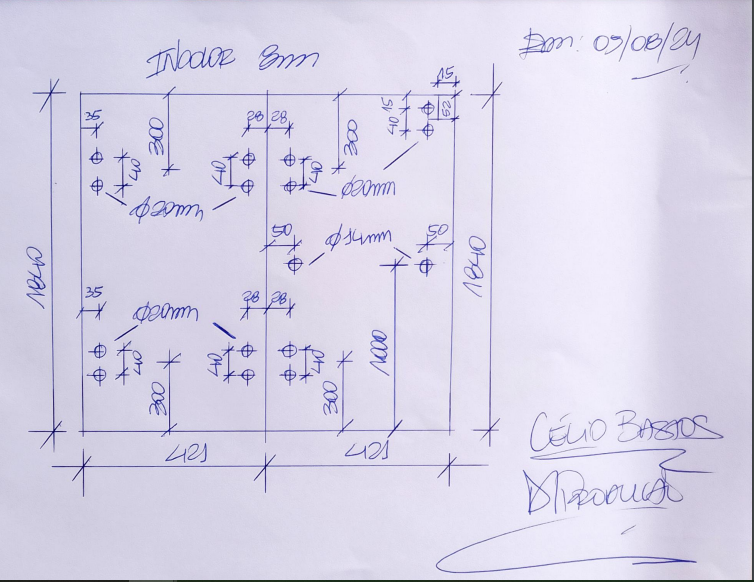 INCOLOR 8mm
Em: 09/08/24
15
35
28 28
15
52
40
300
300
40
40
40
Ø20mm
Ø20mm
50
Ø14mm
50
1840
1840
35
Ø20mm
28 28
40
40
40
1000
300
300
421
421
CÉLIO BASTOS
P/ PRODUÇÃO